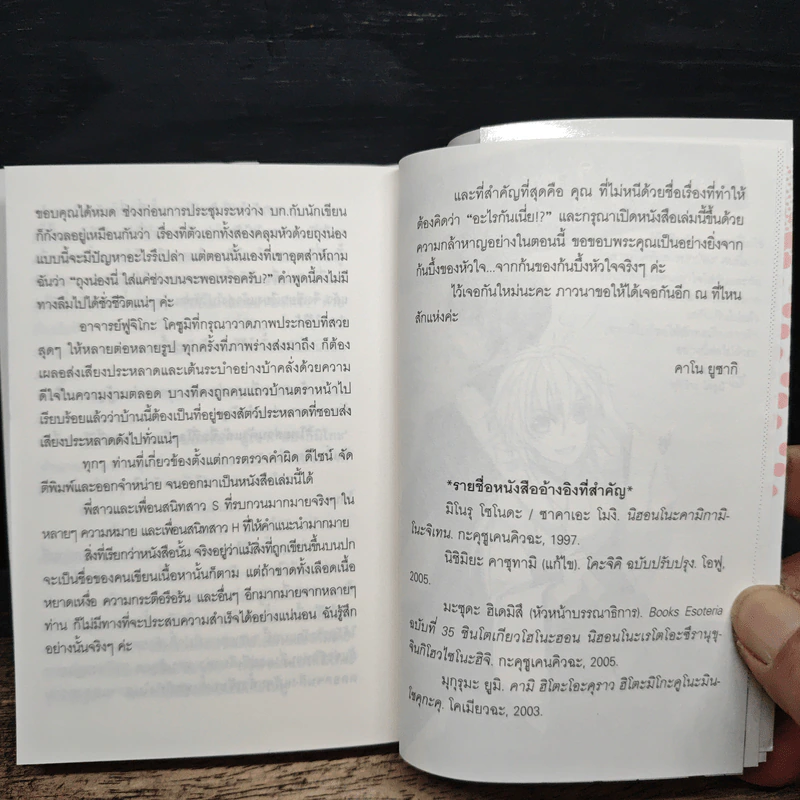 ขอบคุณได้หมด ช่วงก่อนการประชุมระหว่าง บก.กับนักเขียน
ก็กังวลอยู่เหมือนกันว่า เรื่องที่ตัวเอกทั้งสองคลุมหัวด้วยถุงน่อง
แบบนี้จะมีปัญหาอะไรรึเปล่า แต่ตอนนั้นเองที่เขาอุตส่าห์ถาม
ฉันว่า “ถุงน่องนี่ ใส่แค่ช่วงบนจะพอเหรอครับ?” คำพูดนี้คงไม่มี
ทางลืมไปได้ชั่วชีวิตแน่ๆ ค่ะ
อาจารย์ฟูจิโกะ โคซูมิที่กรุณาวาดภาพประกอบที่สวย
สุดๆ ให้หลายต่อหลายรูป ทุกครั้งที่ภาพร่างส่งมาถึง ก็ต้อง
เผลอส่งเสียงประหลาดและเต้นระบำอย่างบ้าคลั่งด้วยความ
ดีใจในความงามตลอด บางทีคงถูกคนแถวบ้านตราหน้าไป
เรียบร้อยแล้วว่าบ้านนี้ต้องเป็นที่อยู่ของสัตว์ประหลาดที่ชอบส่ง
เสียงประหลาดดังไปทั่วแน่ๆ
ทุกๆ ท่านที่เกี่ยวข้องตั้งแต่การตรวจคำผิด ดีไซน์ จัด
ตีพิมพ์และออกจำหน่าย จนออกมาเป็นหนังสือเล่มนี้ได้
พี่สาวและเพื่อนสนิทสาว S ที่รบกวนมากมายจริงๆ ใน
หลายๆ ความหมาย และเพื่อนสนิทสาว H ที่ให้คำแนะนำมากมาย
สิ่งที่เรียกว่าหนังสือนั้น จริงอยู่ว่าแม้สิ่งที่ถูกเขียนขึ้นบนปก
จะเป็นชื่อของคนเขียนเนื้อหานั้นก็ตาม แต่ถ้าขาดทั้งเลือดเนื้อ
หยาดเหงื่อ ความกระตือรือร้น และอื่นๆ อีกมากมายจากหลายๆ
ท่าน ก็ไม่มีทางที่จะประสบความสำเร็จได้อย่างแน่นอน ฉันรู้สึก
อย่างนั้นจริงๆ ค่ะ
และที่สำคัญที่สุดคือ คุณ ที่ไม่หนีด้วยชื่อเรื่องที่ทำให้
ต้องคิดว่า “อะไรกันเนี่ย!?” และกรุณาเปิดหนังสือเล่มนี้ขึ้นด้วย
ความกล้าหาญอย่างในตอนนี้ ขอขอบพระคุณเป็นอย่างยิ่งจาก
ก้นบึ้งของหัวใจ...จากก้นของก้นบึ้งหัวใจจริงๆ ค่ะ
ไว้เจอกันใหม่นะคะ ภาวนาขอให้ได้เจอกันอีก ณ ที่ไหน
สักแห่งค่ะ
คาโน ยูซากิ
*รายชื่อหนังสืออ้างอิงที่สำคัญ*
มิโนรุ โซโนดะ / ซาคาเอะ โมงิ. นิฮอนโนะคามิกามิ-
โนะจิเทน. กะคุชูเคนคิวฉะ, 1997.
นิชิมิยะ คาซุทามิ (แก้ไข). โคะจิคิ ฉบับปรับปรุง. โอฟู,
2005.
มะซุดะ ฮิเดมิสึ (หัวหน้าบรรณาธิการ). Books Esoteria
ฉบับที่ 35 ชินโตเกียวโฮโนะฮอน นิฮอนโนะเรโตโอะชีรานุซุ-
จินกิโฮวไซโนะฮิจิ. กะคุชูเคนคิวฉะ, 2005.
มุกุรุมะ ยูมิ. คามิ ฮิโตะโอะคุราว ฮิโตะมิโกะคูโนะมิน-
โซคุกะคุ. โคเมียวฉะ, 2003.